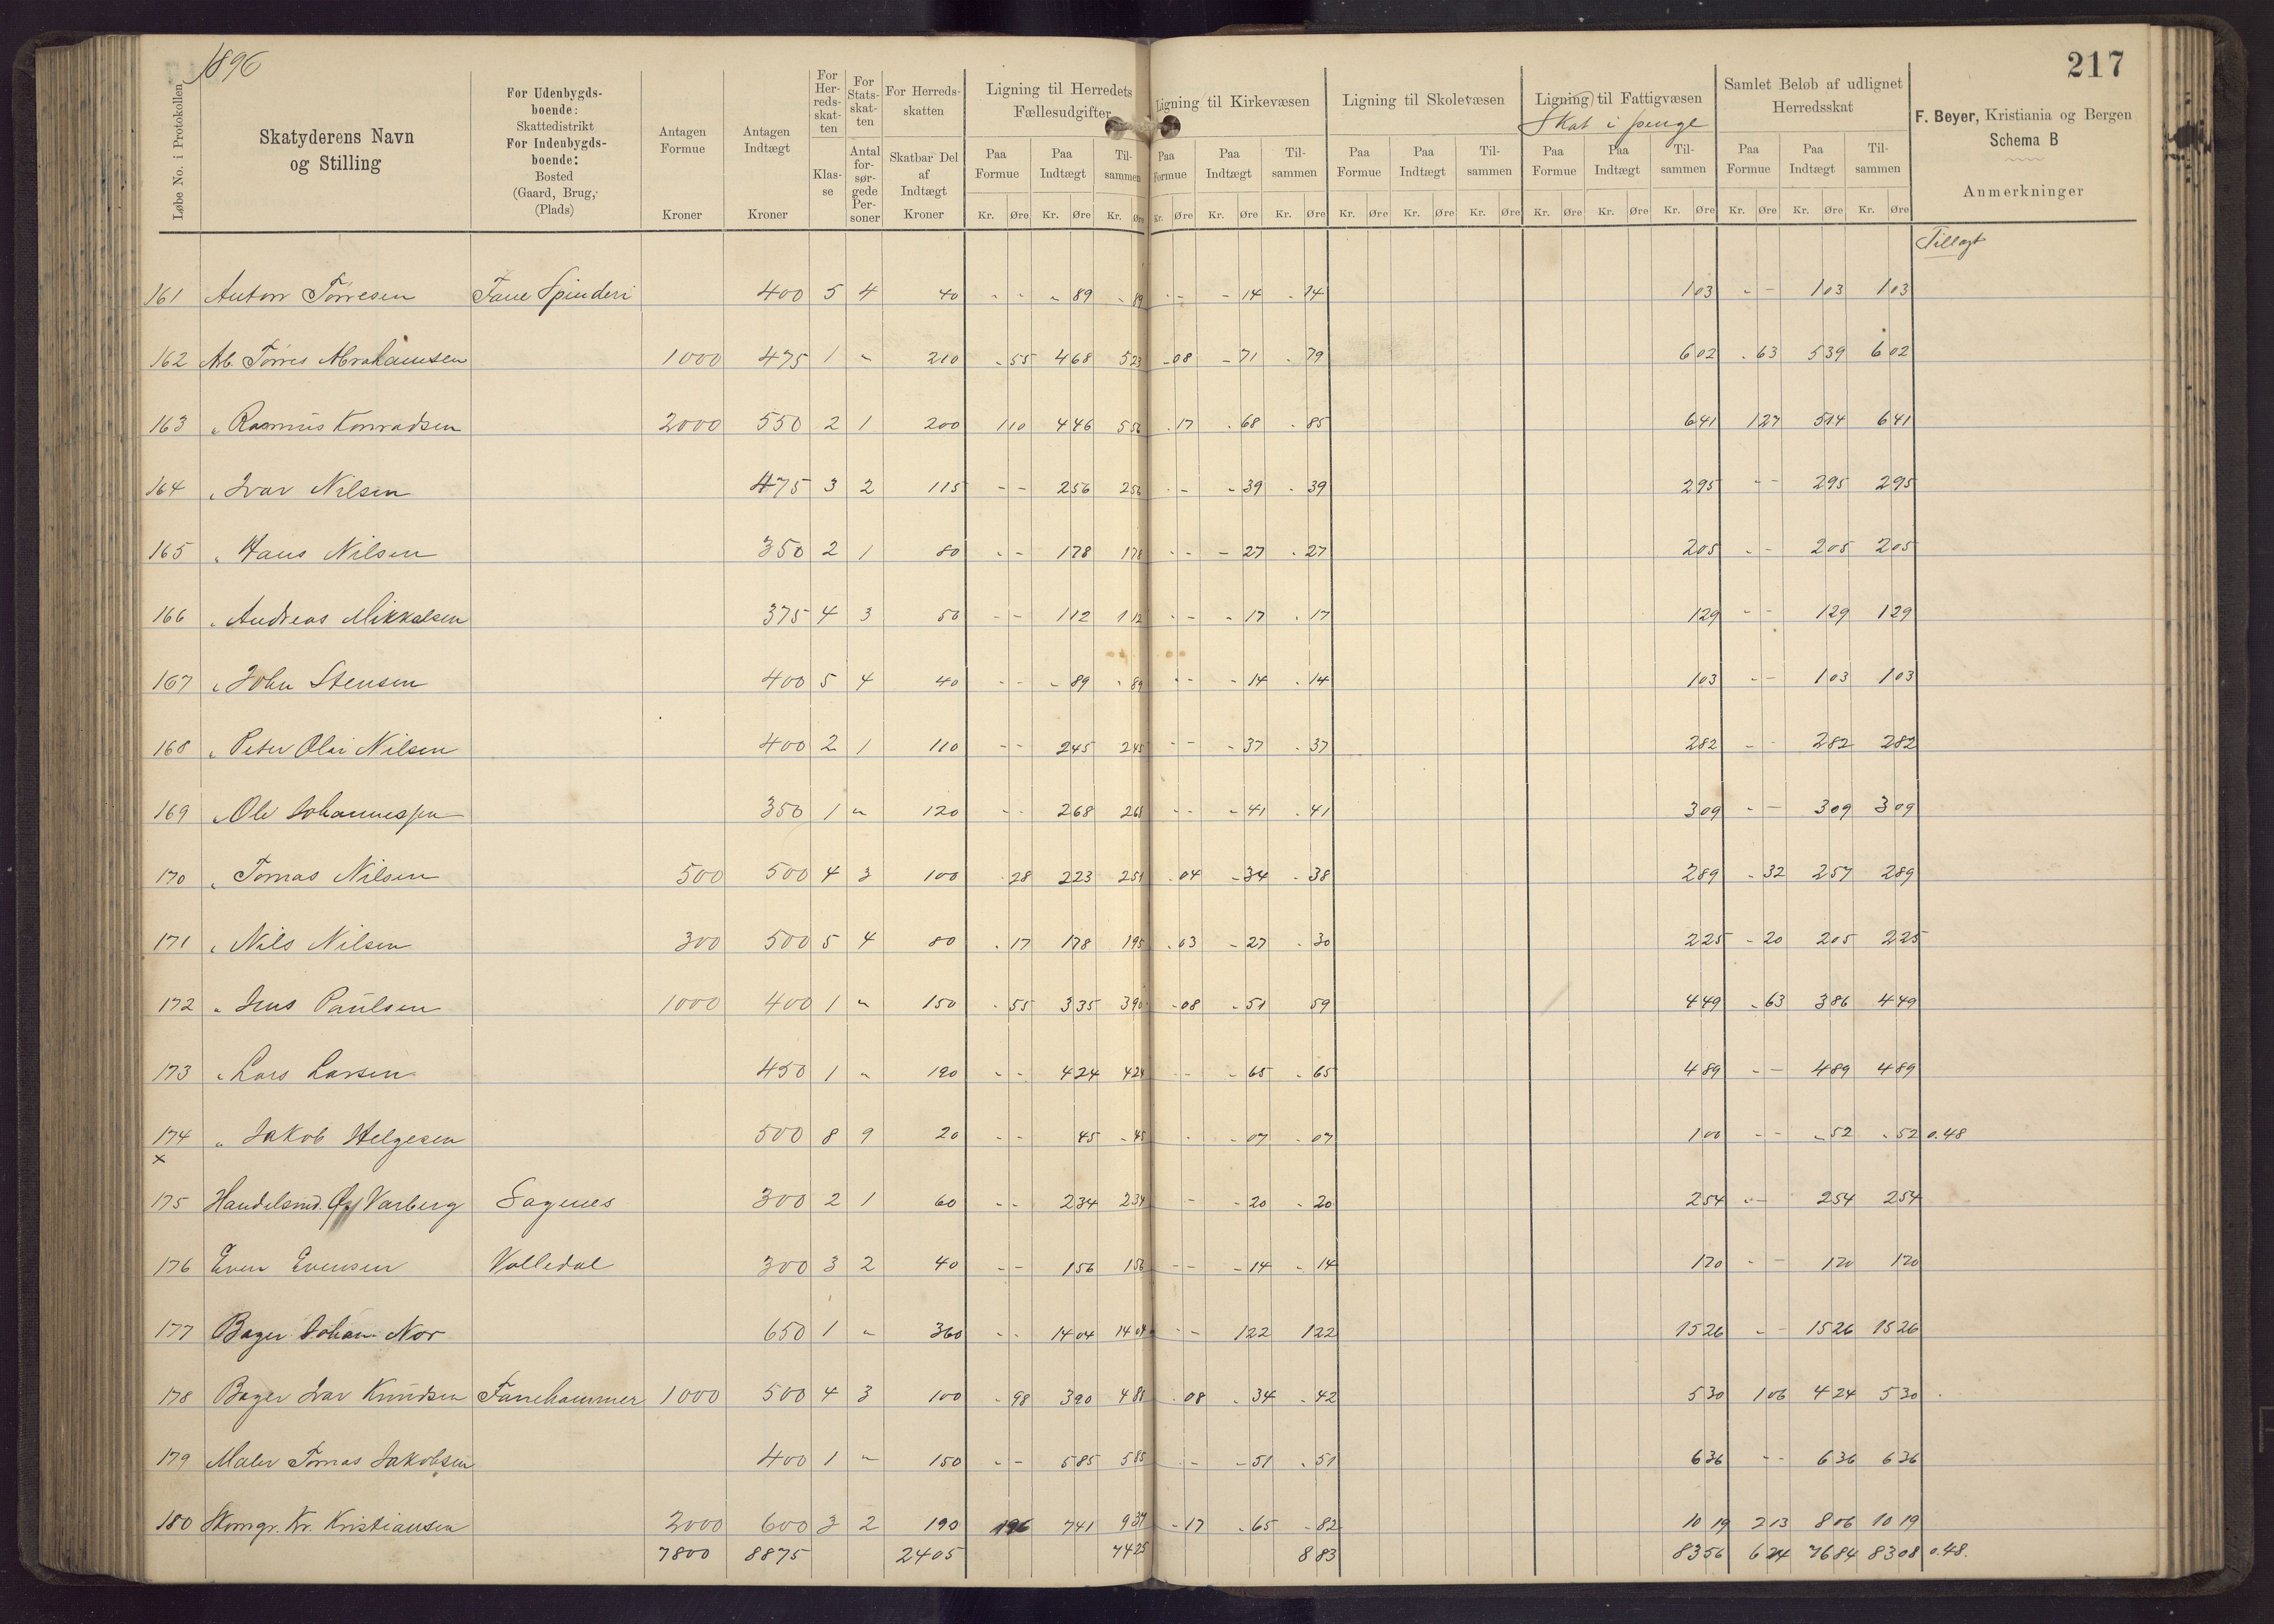 1896
217
Løbe No. i Protokollen
Skatyderens Navn og Stilling
For Udenbygdsboende: Skattedistrikt For Indenbygdsboende: Bosted (Gaard, Brug, Plads)
Antagen Formue Kroner
Antagen Indtægt Kroner
For Herredsskatten Klasse
For Statsskatten Antal forsørgede Personer
For Herredsskatten Skatbar Del af Indtægt Kroner
Ligning til Herredets Fællesudgifter
Paa Formue Paa Indtægt Tilsammen
Kr. Øre Kr. Øre Kr. Øre
Ligning til Kirkevæsen
Paa Formue Paa Indtægt Tilsammen
Kr. Øre Kr. Øre Kr. Øre
Ligning til Skolevæsen
Paa Formue Paa Indtægt Tilsammen
Kr. Øre Kr. Øre Kr. Øre
Ligning til Fattigvæsen
Skat i penge
Paa Formue Paa Indtægt Tilsammen
Kr. Øre Kr. Øre Kr. Øre
Samlet Beløb af udlignet Herredsskat
Paa Formue Paa Indtægt Tilsammen
Kr. Øre Kr. Øre Kr. Øre
F. Beyer, Kristiania og Bergen
Schema B
Anmerkninger
Tillagt
161 Anton Tørresen Fane Spinderi 400 5 4 40 - - - 89 - 89 - - - 14 - 14 1 03 - - 1 03 1 03
162 Arb. Tørres Abrahamsen 1000 475 1 " 210 - 55 4 68 5 23 - 08 - 71 - 79 6 02 - 63 5 39 6 02
163 " Rasmus Konradsen 2000 550 2 1 200 1 10 4 46 5 56 - 17 - 68 - 85 6 41 1 27 5 14 6 41
164 " Ivar Nilsen 475 3 2 115 - - 2 56 2 56 - - - 39 - 39 2 95 - - 2 95 2 95
165 " Hans Nilsen 350 2 1 80 - - 1 78 1 78 - - - 27 - 27 2 05 - - 2 05 2 05
166 " Andreas Mikkelsen 375 4 3 50 - - 1 12 1 12 - - - 17 - 17 1 29 - - 1 29 1 29
167 " John Stensen 400 5 4 40 - - - 89 - 89 - - - 14 - 14 1 03 - - 1 03 1 03
168 " Peter Olai Nilsen 400 2 1 110 - - 2 45 2 45 - - - 37 - 37 2 82 - - 2 82 2 82
169 " Ole Johannessen 350 1 " 120 - - 2 68 2 68 - - - 41 - 41 3 09 - - 3 09 3 09
170 " Tomas Nilsen 500 500 4 3 100 - 28 2 23 2 51 - 04 - 34 - 38 2 89 - 32 2 57 2 89
171 " Nils Nilsen 300 500 5 4 80 - 17 1 78 1 95 - 03 - 27 - 30 2 25 - 20 2 05 2 25
172 " Jens Paulsen 1000 400 1 " 150 - 55 3 35 3 90 - 08 - 51 59 4 49 - 63 3 86 4 49
173 " Lars Larsen 450 1 " 190 - - 4 24 4 24 - - - 65 - 65 4 89 - - 4 89 4 89
174 " Jakob Helgesen 500 8 9 20 - - 45 - 45 - - 07 - 07 1 00 - - - 52 - 52 0.48
x
175 Handelsmd. Varberg Sagenes 300 2 1 60 - - 2 34 2 34 - - 20 - 20 2 54 - - 2 54 2 54
176 Even Evensen Valledal 300 3 2 40 - - 1 56 1 56 - - - 14 - 14 1 70 - - 1 70 1 70
177 Bager Johan Nor 650 1 " 360 - - 14 04 14 04 - - 1 22 1 22 15 26 - - 15 26 15 26
178 Bager Ivar Knudsen Fanehammer 1000 500 4 3 100 - 98 3 90 4 88 - 08 - 34 - 42 5 30 1 06 4 24 5 30
179 Maler Tomas Jakobsen 400 1 " 150 - - 5 85 5 85 - - - 51 - 51 6 36 - - 6 36 6 36
180 Skomgr. Kr. Kristiansen 2000 600 3 2 190 1 96 7 41 9 37 - 17 - 65 - 82 10 19 2 13 8 06 10 19
7800 8875 2405 74 25 8 83 83 56 6 24 76 84 83 08 0.48.